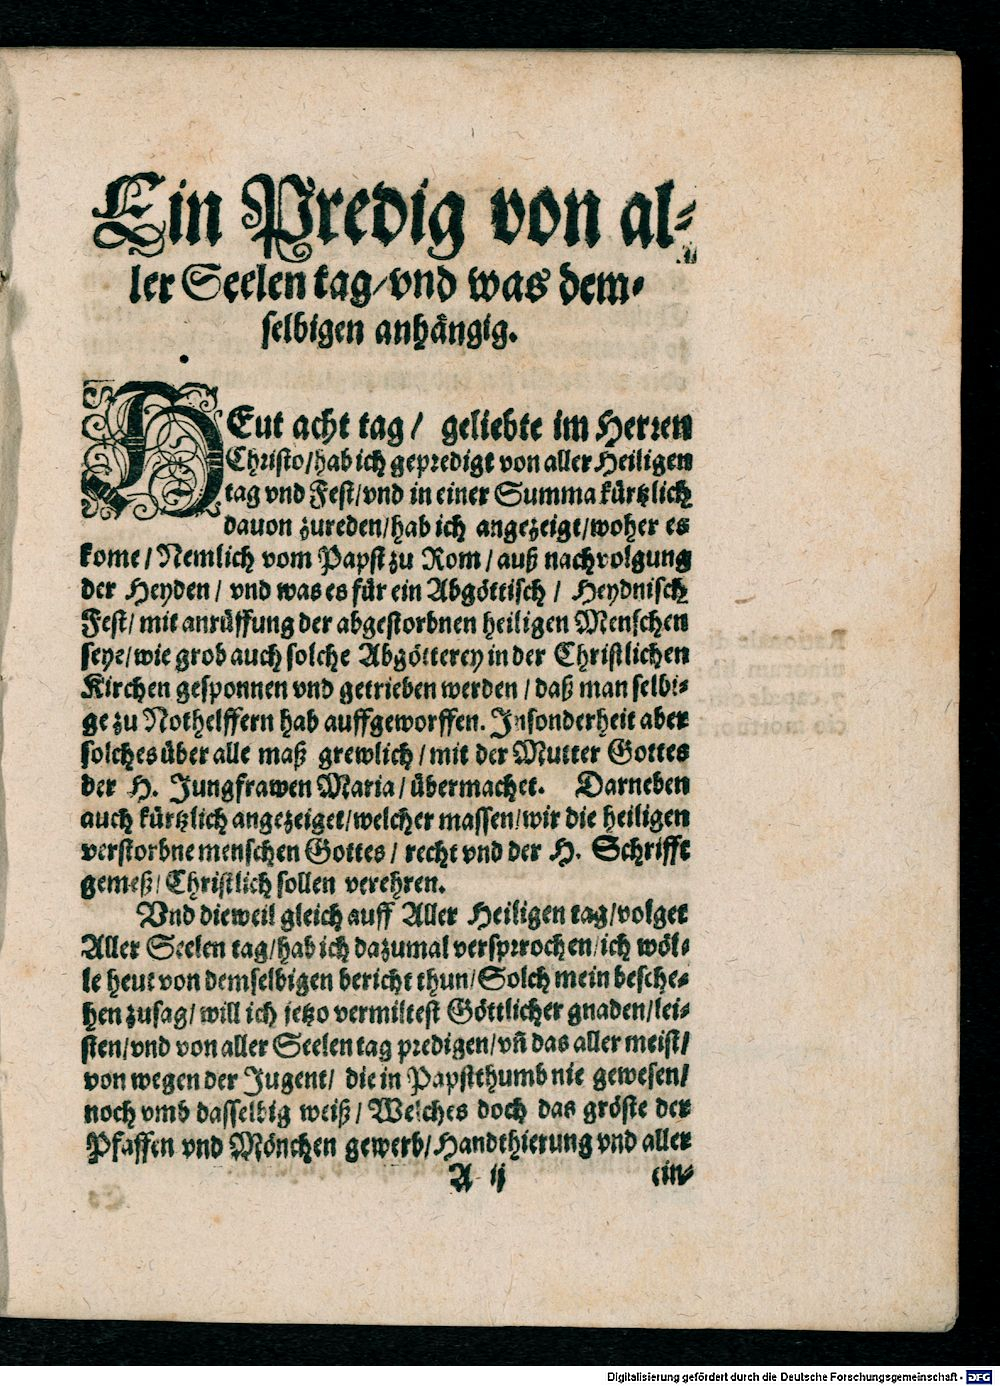 Ein Predig von al-
ler Seelen tag/vnd was dem-
selbigen anhängig.
HEut acht tag/ geliebte im Herren
Christo/hab ich gepredigt von aller Heiligen
tag vnd Fest/vnd in einer Summa kürtzlich
dauon zureden/hab ich angezeigt/woher es
kome/Nemlich vom Papst zu Rom/auß nachvolgung
der Heyden/ vnd was es für ein Abgöttisch/ Heydnisch
Fest/mit anrüffung der abgestorbnen heiligen Menschen
seye/wie grob auch solche Abgötterey in der Christlichen
Kirchen gesponnen vnd getrieben werden/daß man selbi-
ge zu Nothelffern hab auffgeworffen. Insonderheit aber
solches über alle maß grewlich/mit der Mutter Gottes
der H. Jungfrawen Maria/übermachet. Darneben
auch kürtzlich angezeiget/welcher massen/wir die heiligen
verstorbne menschen Gottes/ recht vnd der H. Schrifft
gemeß/Christlich sollen verehren.
Vnd dieweil gleich auff Aller Heiligen tag/volget
Aller Seelen tag/hab ich dazumal versprrochen/ich wöl-
le heut von demselbigen bericht thun/Solch mein besche-
hen zusag/will ich jetzo vermiltest Göttlicher gnaden/lei-
sten/vnd von aller Seelen tag predigen/vñ das aller meist/
von wegen der Jugent/ die in Papstthumb nie gewesen/
noch vmb dasselbig weiß/Welches doch das gröste der
Pfaffen vnd Mönchen gewerb/Handthierung vnd aller
A ij
ein-
Digitalisierung gefördert durch die Deutsche Forschungsgemeinschaft - DFG